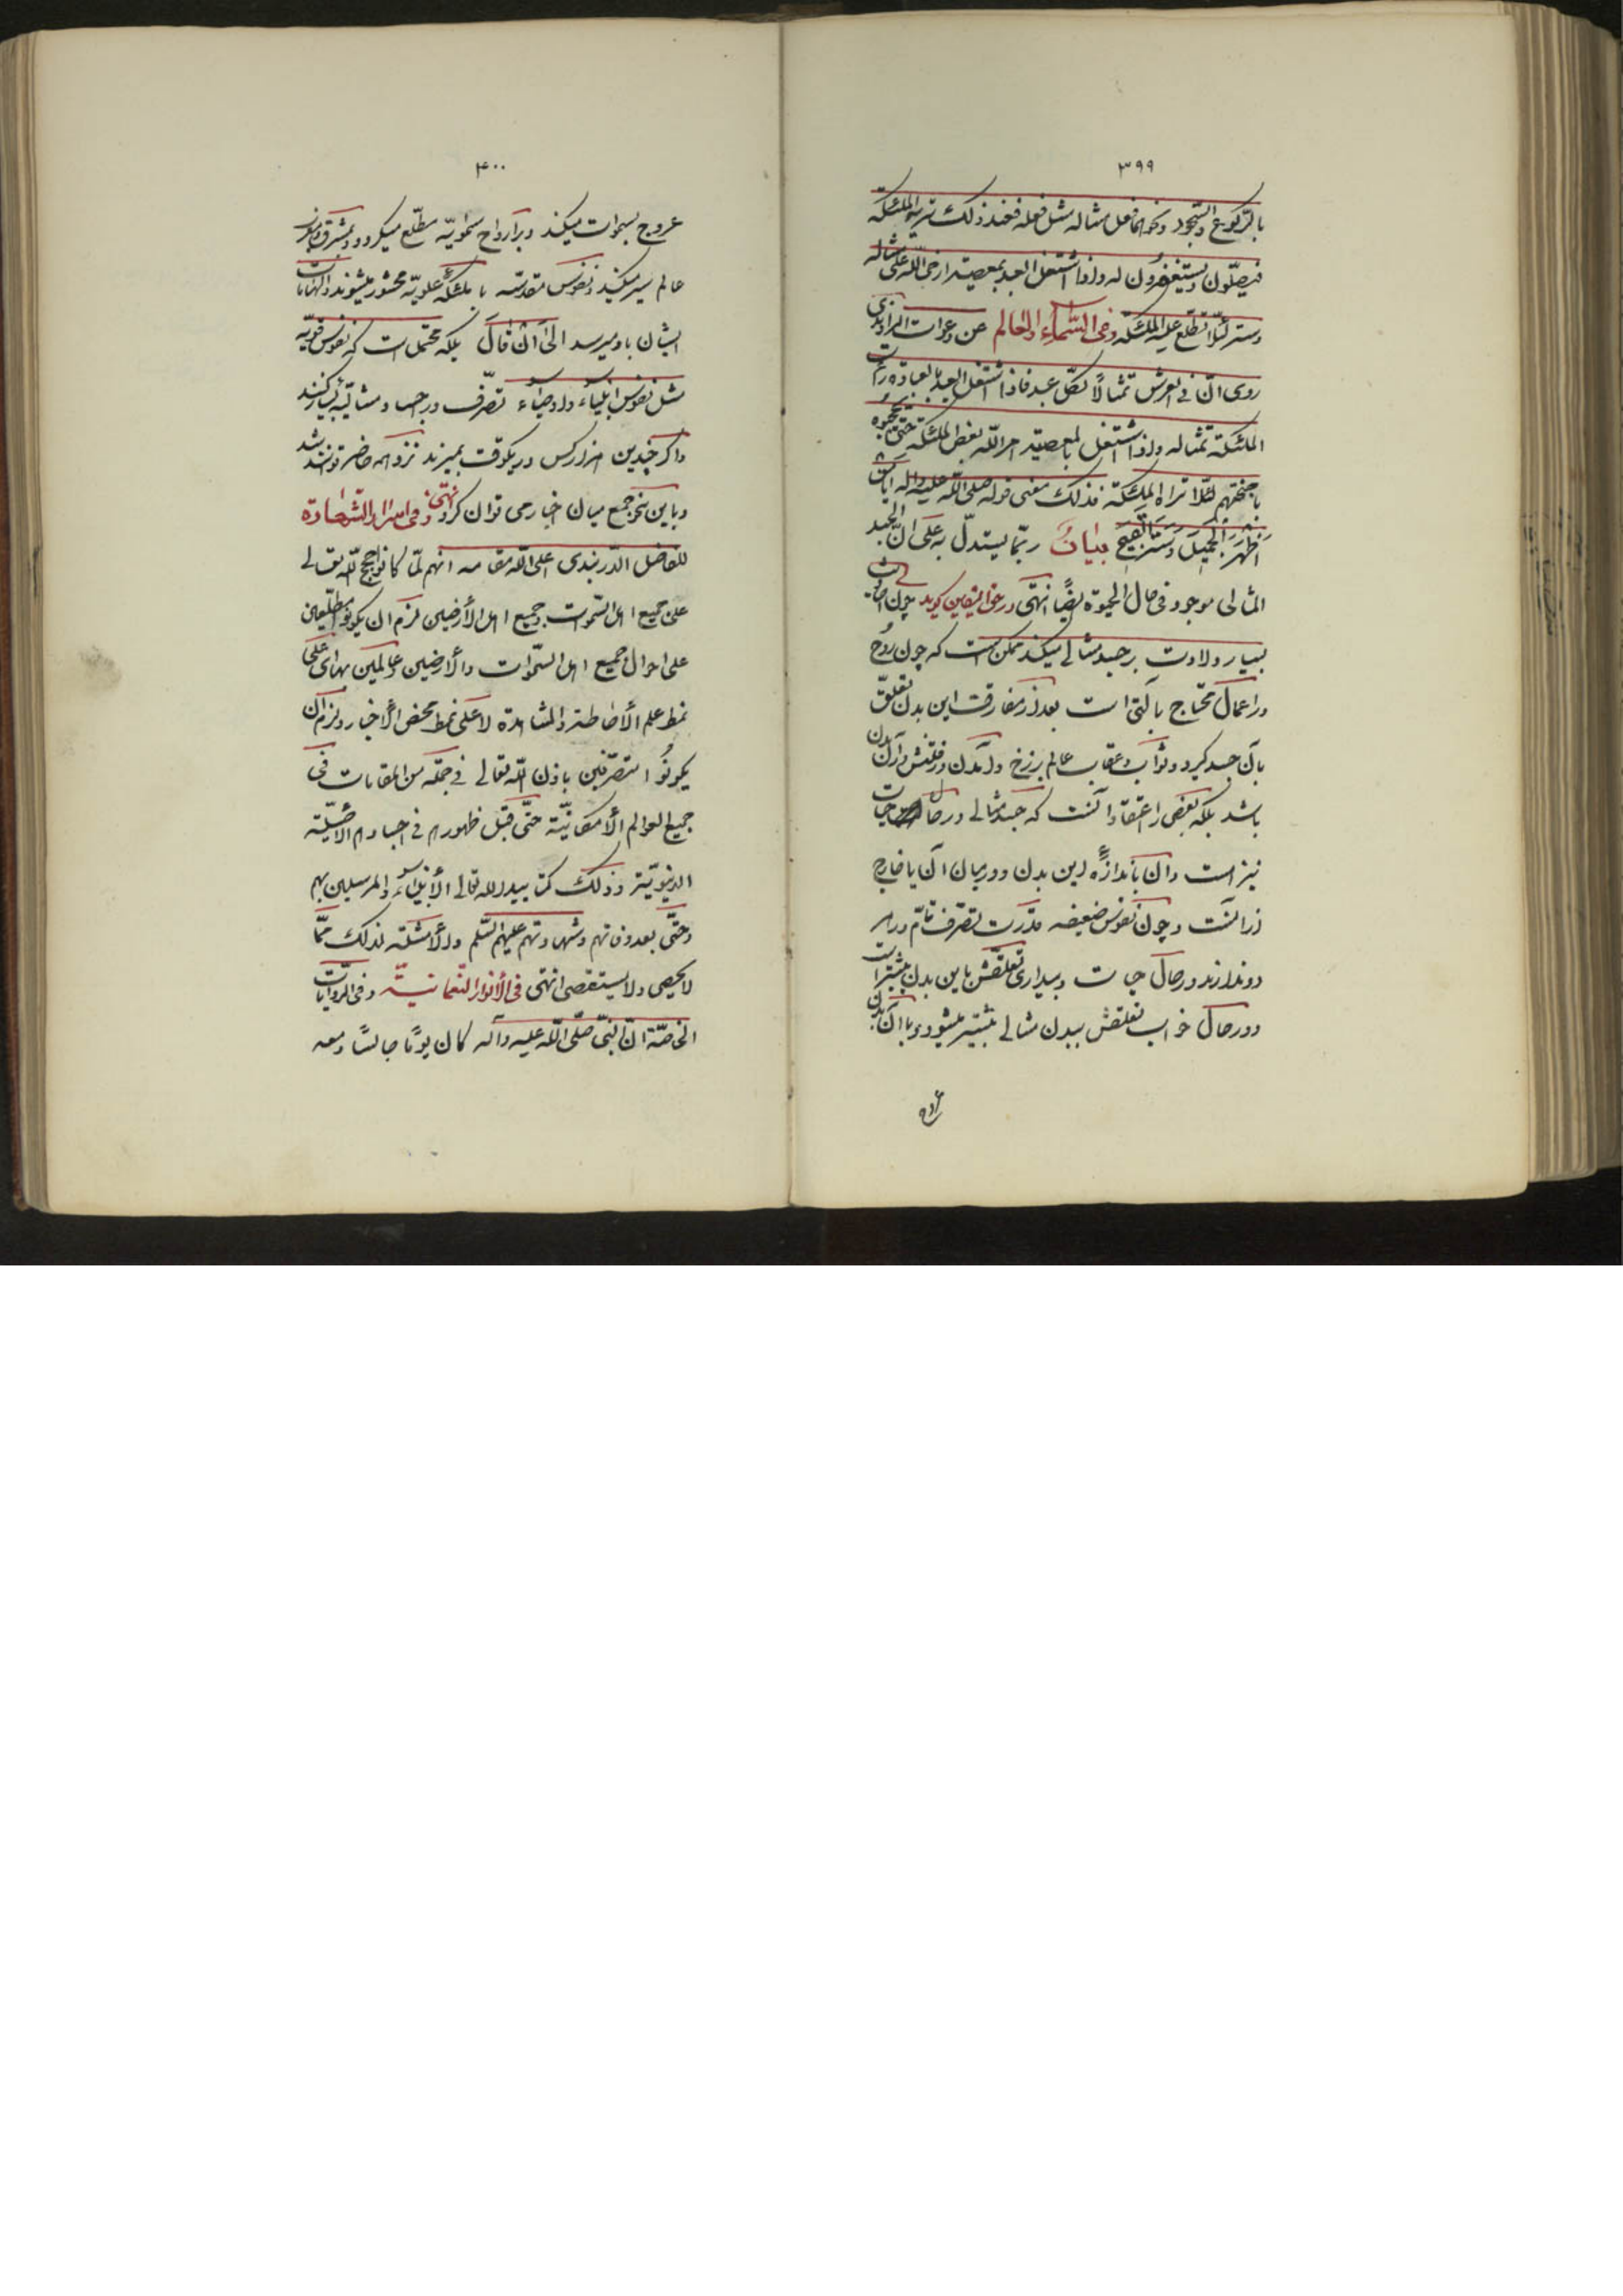 ۳۹۹
بالركوع والسجود ونحوهما فعل مثاله مثل فعله فعند ذلك تريه الملئكة
فيصلّون ويستغفرون له واذا اشتغل العبد بمعصية ارخى اللّه على مثاله
ستر لئلّا تطّلع عليه الملئكة وفى السّماء والعالم عن دعوات الراوندى
روى انّ فى العرش تمثالًا لكلّ عبد فاذا اشتغل العبد بالعبادة رأت
الملئكة تمثاله واذا اشتغل بالمعصية امر اللّه بعض الملئكة حتى يحجبوه
باجنحتهم لئلّا تراه الملئكة فذلك معنى قوله صلى اللّه عليه واله يا من
اظهَرَ الجَميلَ وسَتَرَ القَبيح بيانٌ ربّما يستدلّ به على انّ الجسد
المثالى موجود فى حال الحيوة ايضًا انتهى ودر حق اليقين كويد چون احاديث
بسيار دلالت بر جسد مثالى ميكند ممكن است كه چون روح
در اعمال محتاج بآلتى است بعد از مفارقت اين بدن تعلّق
بآن جسد كيرد وثواب وعقاب عالم برزخ وآمدن ورفتنش در آن بدن
باشد بلكه بعضى را اعتقاد آنست كه جسد مثالى در حال حيات
نيز است وان باندازهٔ اين بدن ودر ميان آن يا خارج
از آنست وچون نفوس ضعيفه قدرت تصرّف تامّ در هر
دو ندارند در حال حيات وبيدارى تعلّقش باين بدن بيشتر است
ودر حال خواب تعلقش ببدن مثالى بيشتر ميشود وبا آن بدن
عروج
۴۰۰
عروج بسموات ميكند وبر ارواح سماويّه مطّلع ميكردد وبمشرق ومغرب
عالم سير ميكند ونفوس مقدّسه با ملئكهٔ علويّه محشور ميشوند والهامات
ايشان باو ميرسد الى ان قال بلكه محتمل است كه نفوس قويّه
مثل نفوس انبياء واوصياء تصرّف در اجساد مثاليّه بسيار كنند
واكر چندين هزار كس در يكوقت بميرند نزد همه حاضر توانند شد
وباين نحو جمع ميان اخبار مى توان كرد انتهى وفى اسرار الشهادة
للفاضل الدّربندى اعلى اللّه مقامه انهم لمّا كانوا حجج اللّه تعالى
على جميع اهل السّموات وجميع اهل الأرضين لزم ان يكونوا مطّلعين
على احوال جميع اهل السّموات والأرضين وعالمين بها اى على
نمط علم الأحاطة والمشاهدة لا على نمط محض الأخبار ولزم ان
يكونُوا متصرّفين باذن اللّه تعالى فى جملة من المقامات فى
جميع العوالم الأمكانيّة حتّى قبل ظهورهم فى اجسادهم الأصليّة
الدنيويّة وذلك كتأييد اللّه تعالى الأنبياء والمرسلين بهم
وحتّى بعد وفاتهم وشهادتهم عليهم السّلم والأمثلة لذلك ممّا
لا يحصى ولا يستقصى انتهى فى الأنوار النّعمانيّة وفى الروايات
الخاصّة انّ النبىّ صلّى اللّه عليه وآله كان يومًا جالسًا ومعه